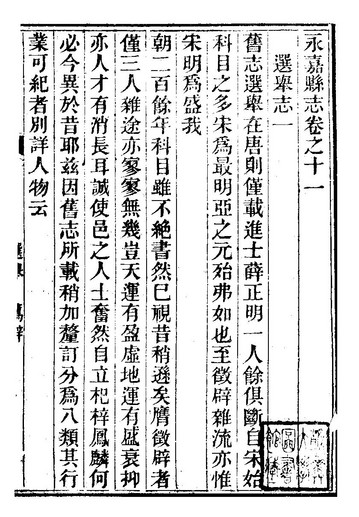 永嘉縣志卷之十一
選舉志一
舊志選舉在唐則僅載進士薛正明一人餘俱斷自宋始
科目之多宋爲最明亞之元殆弗如也至徵辟雜流亦惟
宋明爲盛我
朝二百餘年科目雖不絶書然已視昔稍遜矣膺徵辟者
僅三人雜途亦寥寥無幾豈天運有盈虚地運有盛衰抑
亦人才有消長耳誠使邑之人士奮然自立杞梓鳳麟何
必今異於昔耶兹因舊志所載稍加釐訂分爲八類其行
業可紀者別詳人物云